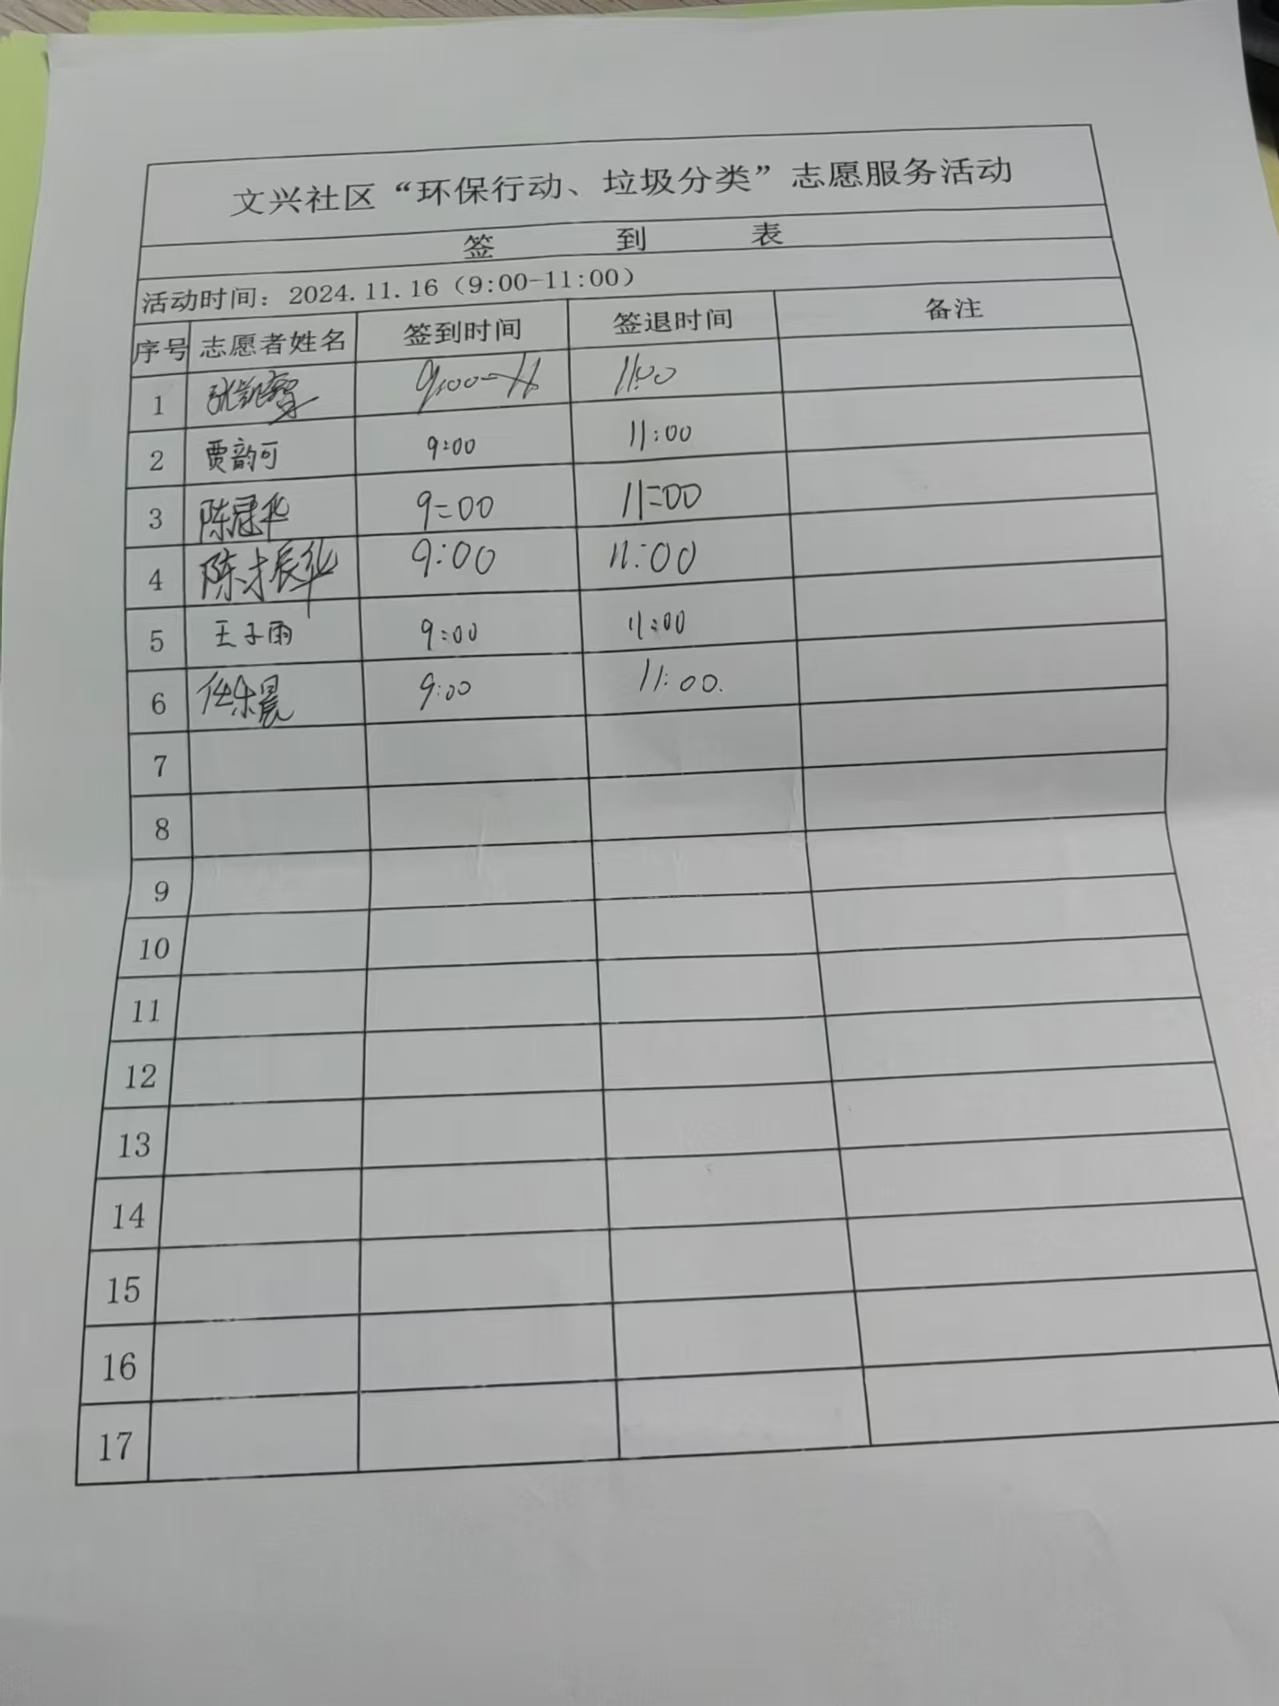 文兴社区“环保行动、垃圾分类”志愿服务活动
签 到 表
活动时间：2024.11.16（9:00-11:00）
序号 志愿者姓名 签到时间 签退时间 备注
1 张凯 9:00 11:00
2 贾韵可 9:00 11:00
3 陈冠华 9:00 11:00
4 陈 11:00 9:00
5 王子雨 9:00 11:00
6 晨 9:00 11:00.
7
8
9
10
11
12
13
14
15
16
17